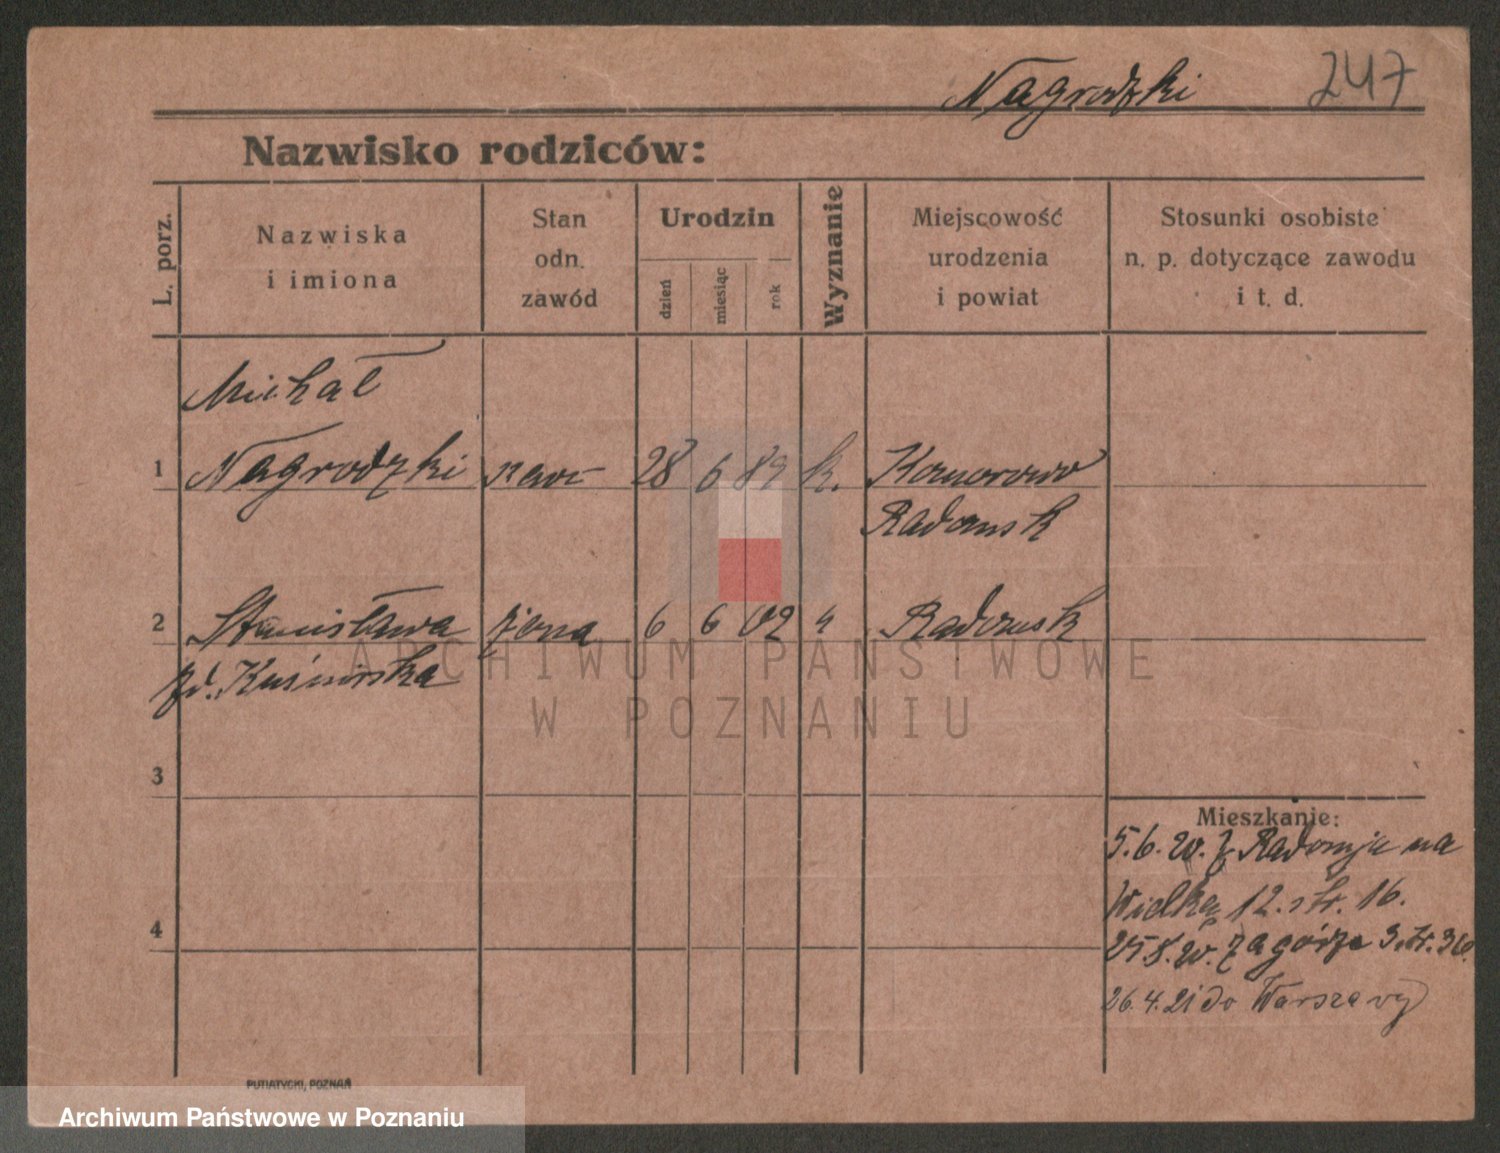 Nagrodzki 247
Nazwisko rodziców:
L. porz.
Nazwiska
i imiona
Stan
odn.
zawód
Urodzin
dzień
miesiąc
rok
Wyznanie
Miejscowość
urodzenia
i powiat
Stosunki osobiste
n. p. dotyczące zawodu
i t. d.
Michał
1 Nagrodzki 28 6 89 k. Komorowo
Radomsk
2 Stanisława żona 6 6 02 " Radomsk
zd. Kuśmirska
3
4
Mieszkanie:
5.6.20. z Radomja na
Wielką 12. str. 16.
25.8.20. Zagórze 3. str. 36.
26.4.21 do Warszawy
PUTIATYCKI, POZNAŃ
ARCHIWUM PAŃSTWOWE
W POZNANIU
Archiwum Państwowe w Poznaniu